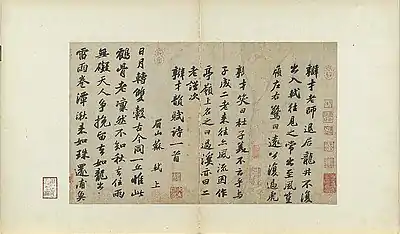 辯才老師退居龍井不復
出入軾往見之常出至風篁
嶺左右驚曰遠公復過虎
辯才笑曰杜子美不云乎與
子成二老來往亦風流因作
亭嶺上名之曰過溪亦曰二
老謹次
辯才韻賦詩一首
眉山蘇軾上
日月轉雙轂古今同一丘惟此
鶴骨老凜然不知秋去住兩
無礙人天爭挽留去如龍出
雷雨卷潭湫來如珠還浦魚